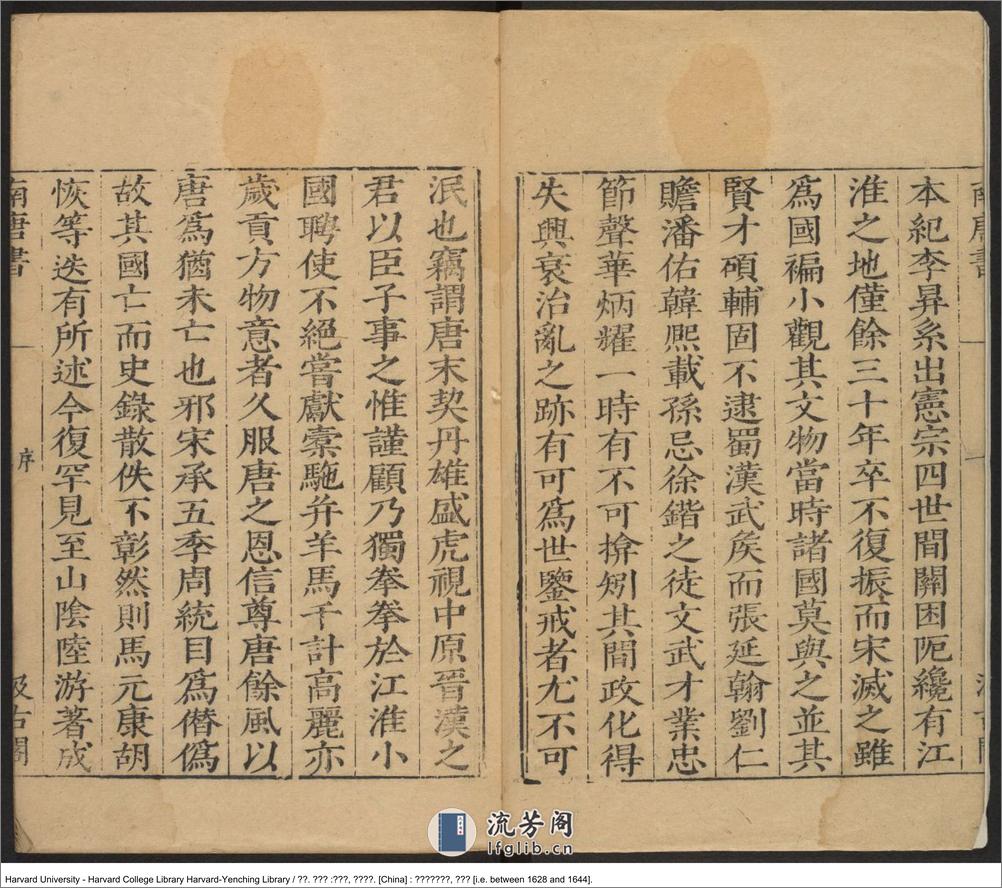 本紀李昇系出憲宗四世間關困阨纔有江
淮之地僅餘三十年卒不復振而宋滅之雖
爲國褊小觀其文物當時諸國莫與之並其
賢才碩輔固不逮蜀漢武矦而張延翰劉仁
贍潘佑韓熙載孫忌徐鍇之徒文武才業忠
節聲華炳耀一時有不可揜矧其間政化得
失興衰治亂之跡有可爲世鑒戒者尤不可
泯也竊謂唐末契丹雄盛虎視中原晉漢之
君以臣子事之惟謹顧乃獨拳拳於江淮小
國聘使不絕嘗獻橐駞并羊馬千計高麗亦
歲貢方物意者久服唐之恩信尊唐餘風以
唐爲猶未亡也邪宋承五季周統目爲僭僞
故其國亡而史錄散佚不彰然則馬元康胡
恢等迭有所述今復罕見至山陰陸游著成
南唐書
序
汲古閣
流芳阁
lfglib.cn
Harvard University - Harvard College Library Harvard-Yenching Library / ??. ??? :???, ????. [China] : ???????, ??? [i.e. between 1628 and 1644].